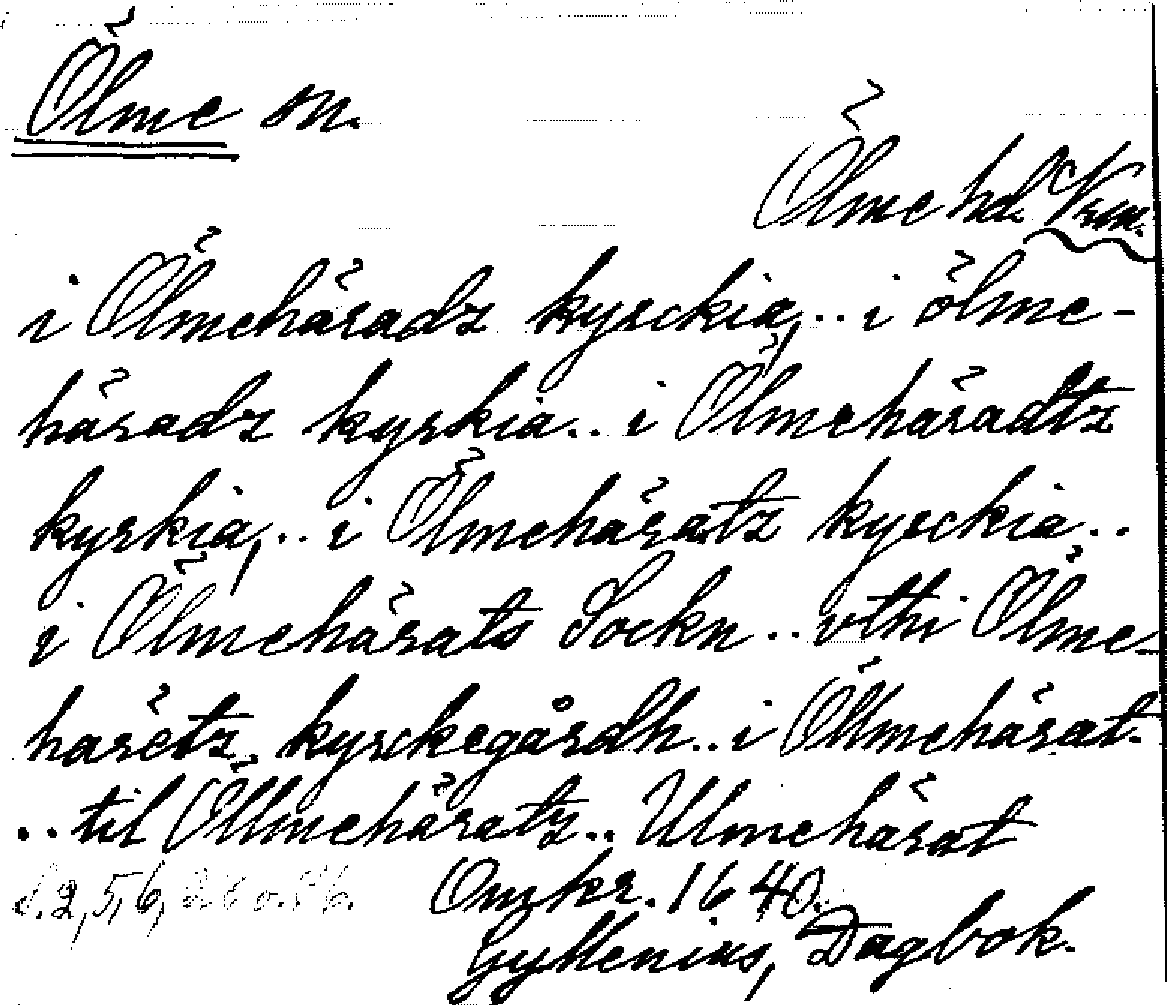 Ölme sn.
Ölme hd. Vrm.
i Ölmehäradz kyrckia, .. i ölme-
häradz kyrkia .. i Ölmehäradtz
kyrkia, .. i Ölmehäratz kyrckia ..
i Ölmehärats Sockn .. vthi Ölme-
harëtz kyrckegårdh .. i Öllmehärat.
.. til Öllmehäratz .. Ulmehärat
s. 2, 5, 6, Omkr. 1640.
Gyllenius, Dagbok.